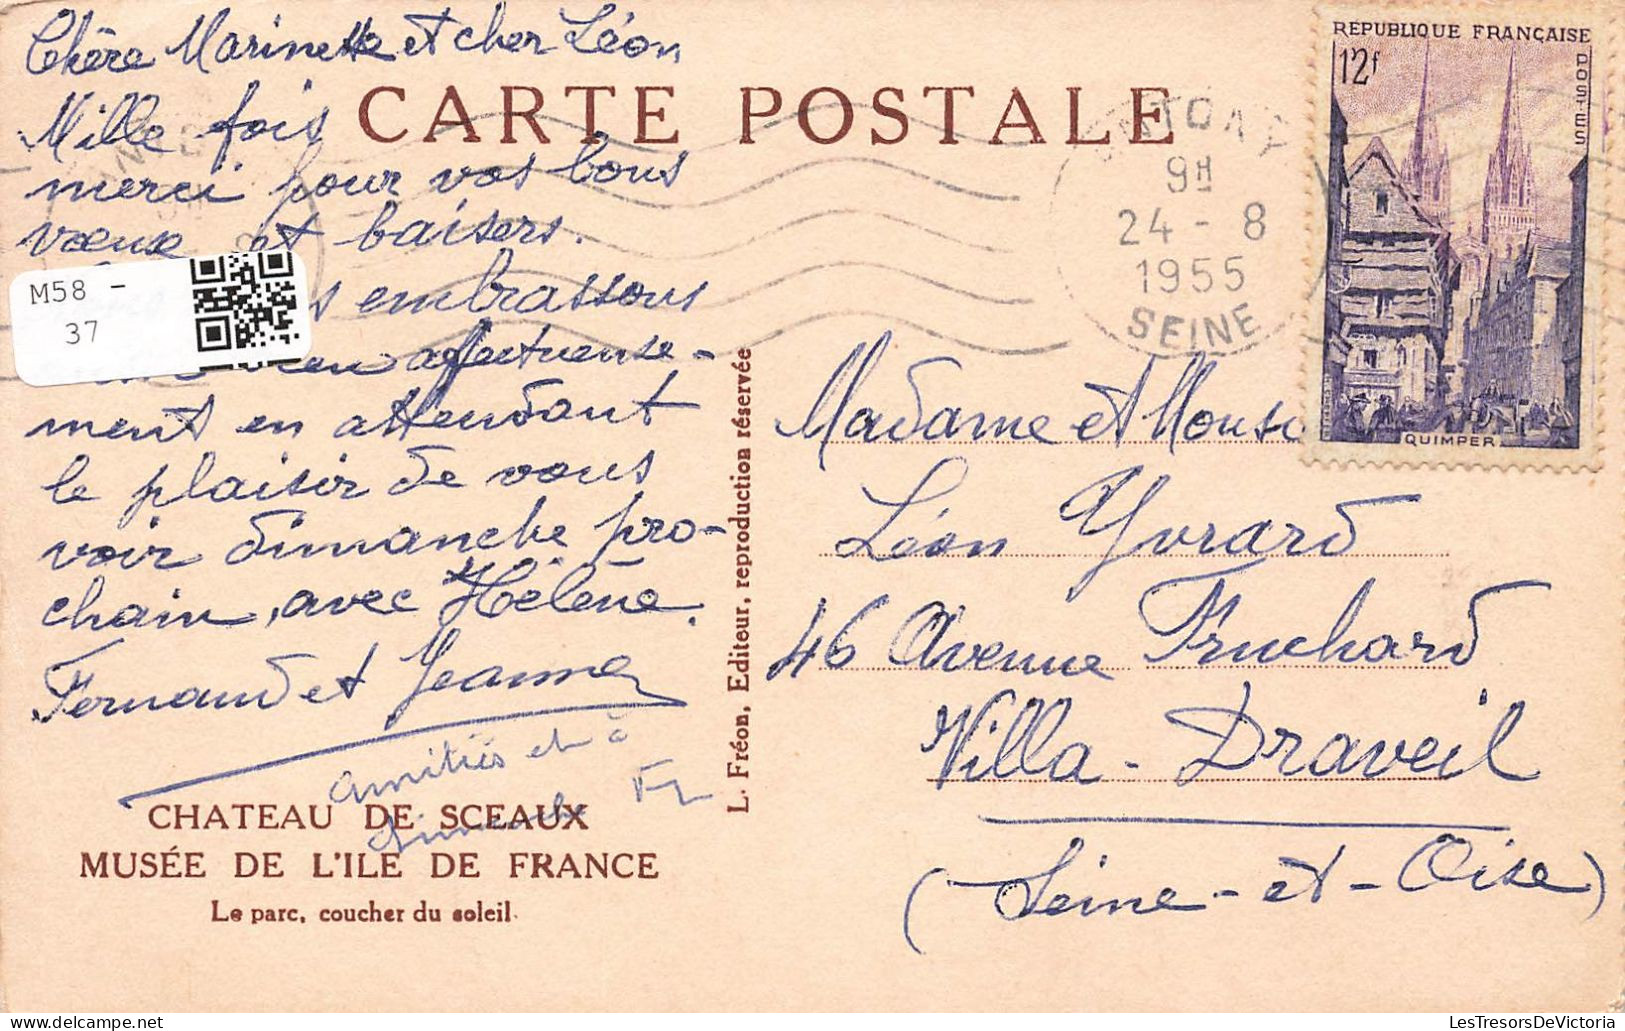 Chère Marinette et cher Léon
Mille fois
merci pour vos bons
vœux et baisers.
embrassons
affectueuse-
ment en attendant
le plaisir de vous
voir dimanche pro-
chain, avec Hélène.
Fernand et Jeanne
amitiés et à
dimanche
CARTE POSTALE
M58 -
37
CHATEAU DE SCEAUX
MUSÉE DE L'ILE DE FRANCE
Le parc, coucher du soleil.
L. Fréon, Editeur, reproduction réservée
9H
24 - 8
1955
SEINE
RÉPUBLIQUE FRANÇAISE
12f
POSTES
QUIMPER
Madame et Mons
Léon Yvrard
46 Avenue Fruchard
Villa - Draveil
(Seine-et-Oise)
LesTresorsDeVictoria